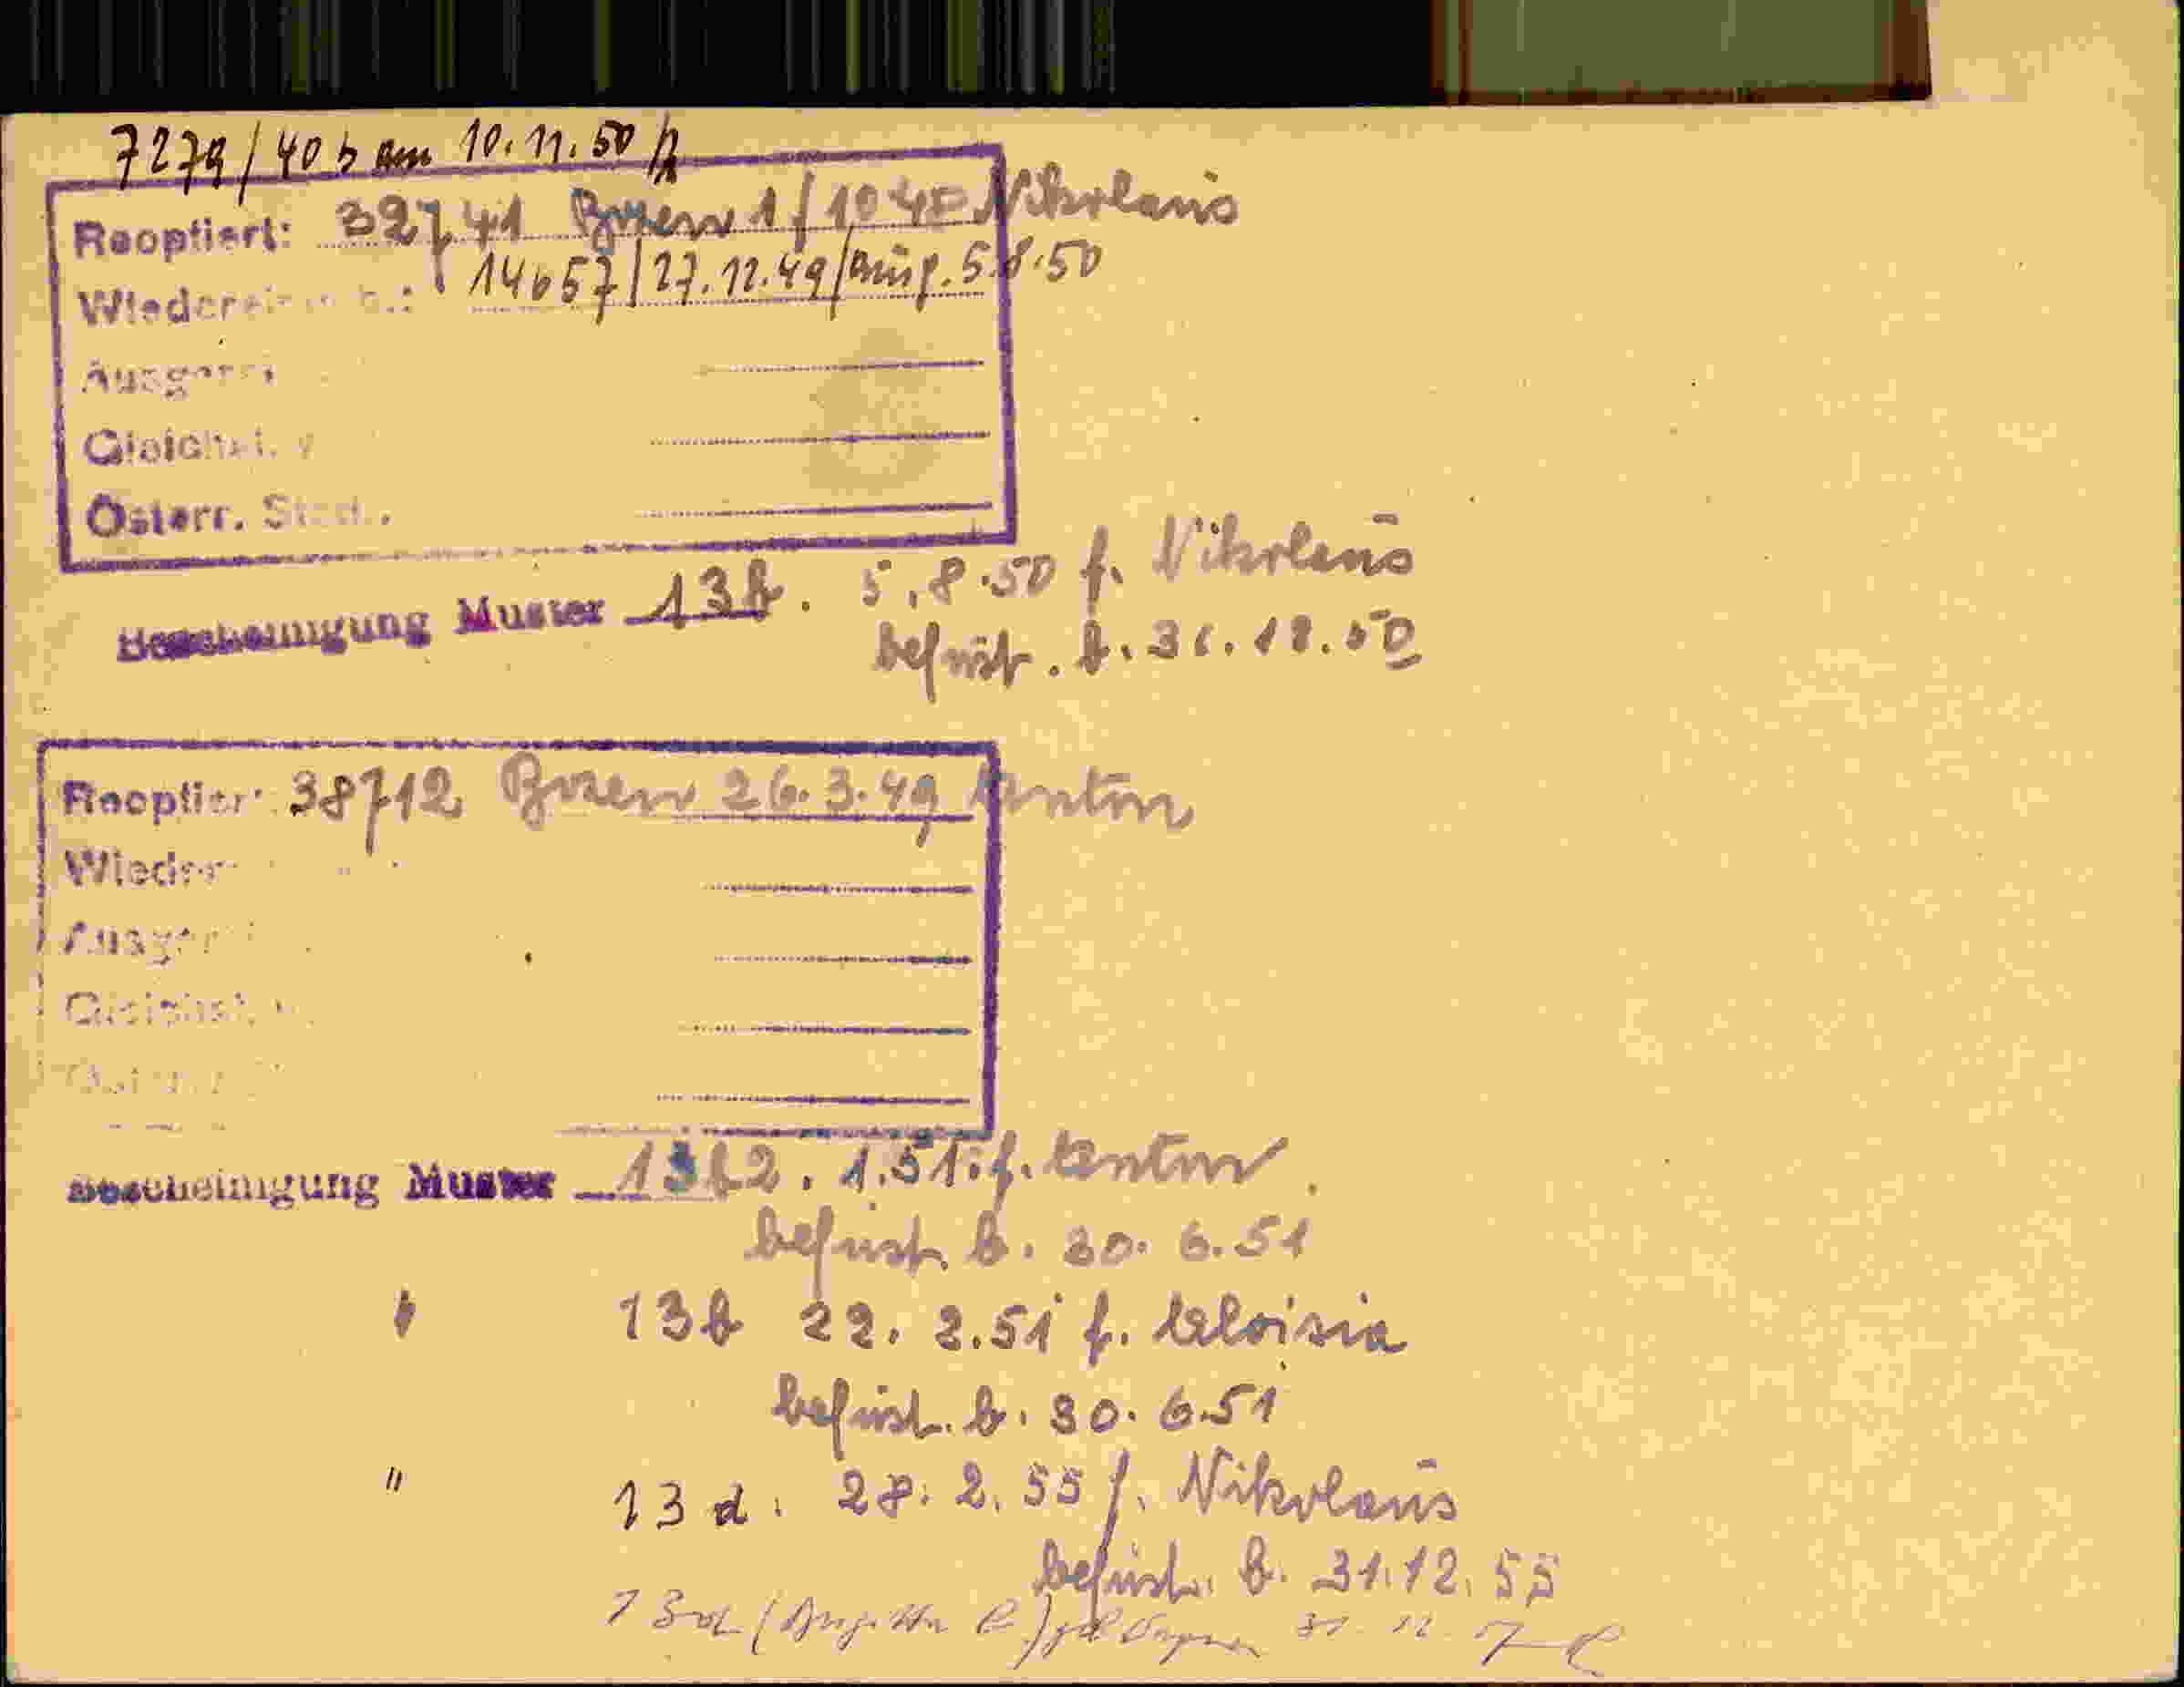 7279/40 b am 10.11.50
Reoptiert: 32741 Bozen 1/10 48 Nikolaus
14657/27.12.49/ausg. 5.8.50
Österr.
Bescheinigung Muster 13b. 5.8.50 f. Nikolaus
befrist. b. 31.12.50
Reoptiert 38712 Bozen 26.3.49 Anton
Bescheinigung Muster 13b 2.1.51. f. Anton
befrist. b. 30. 6.51
" 13b 22. 2.51 f. Aloisia
befrist. b. 30. 6.51
" 13 d. 28. 2. 55 f. Nikolaus
befrist. b. 31.12.55
13d